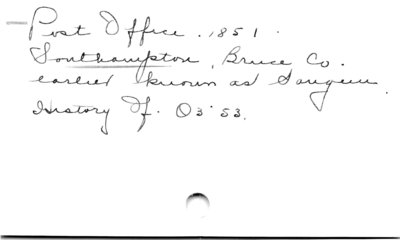 Post Office. 1851.
Southampton, Bruce Co.
earlier known as Saugeen.
History Of. O3·53.